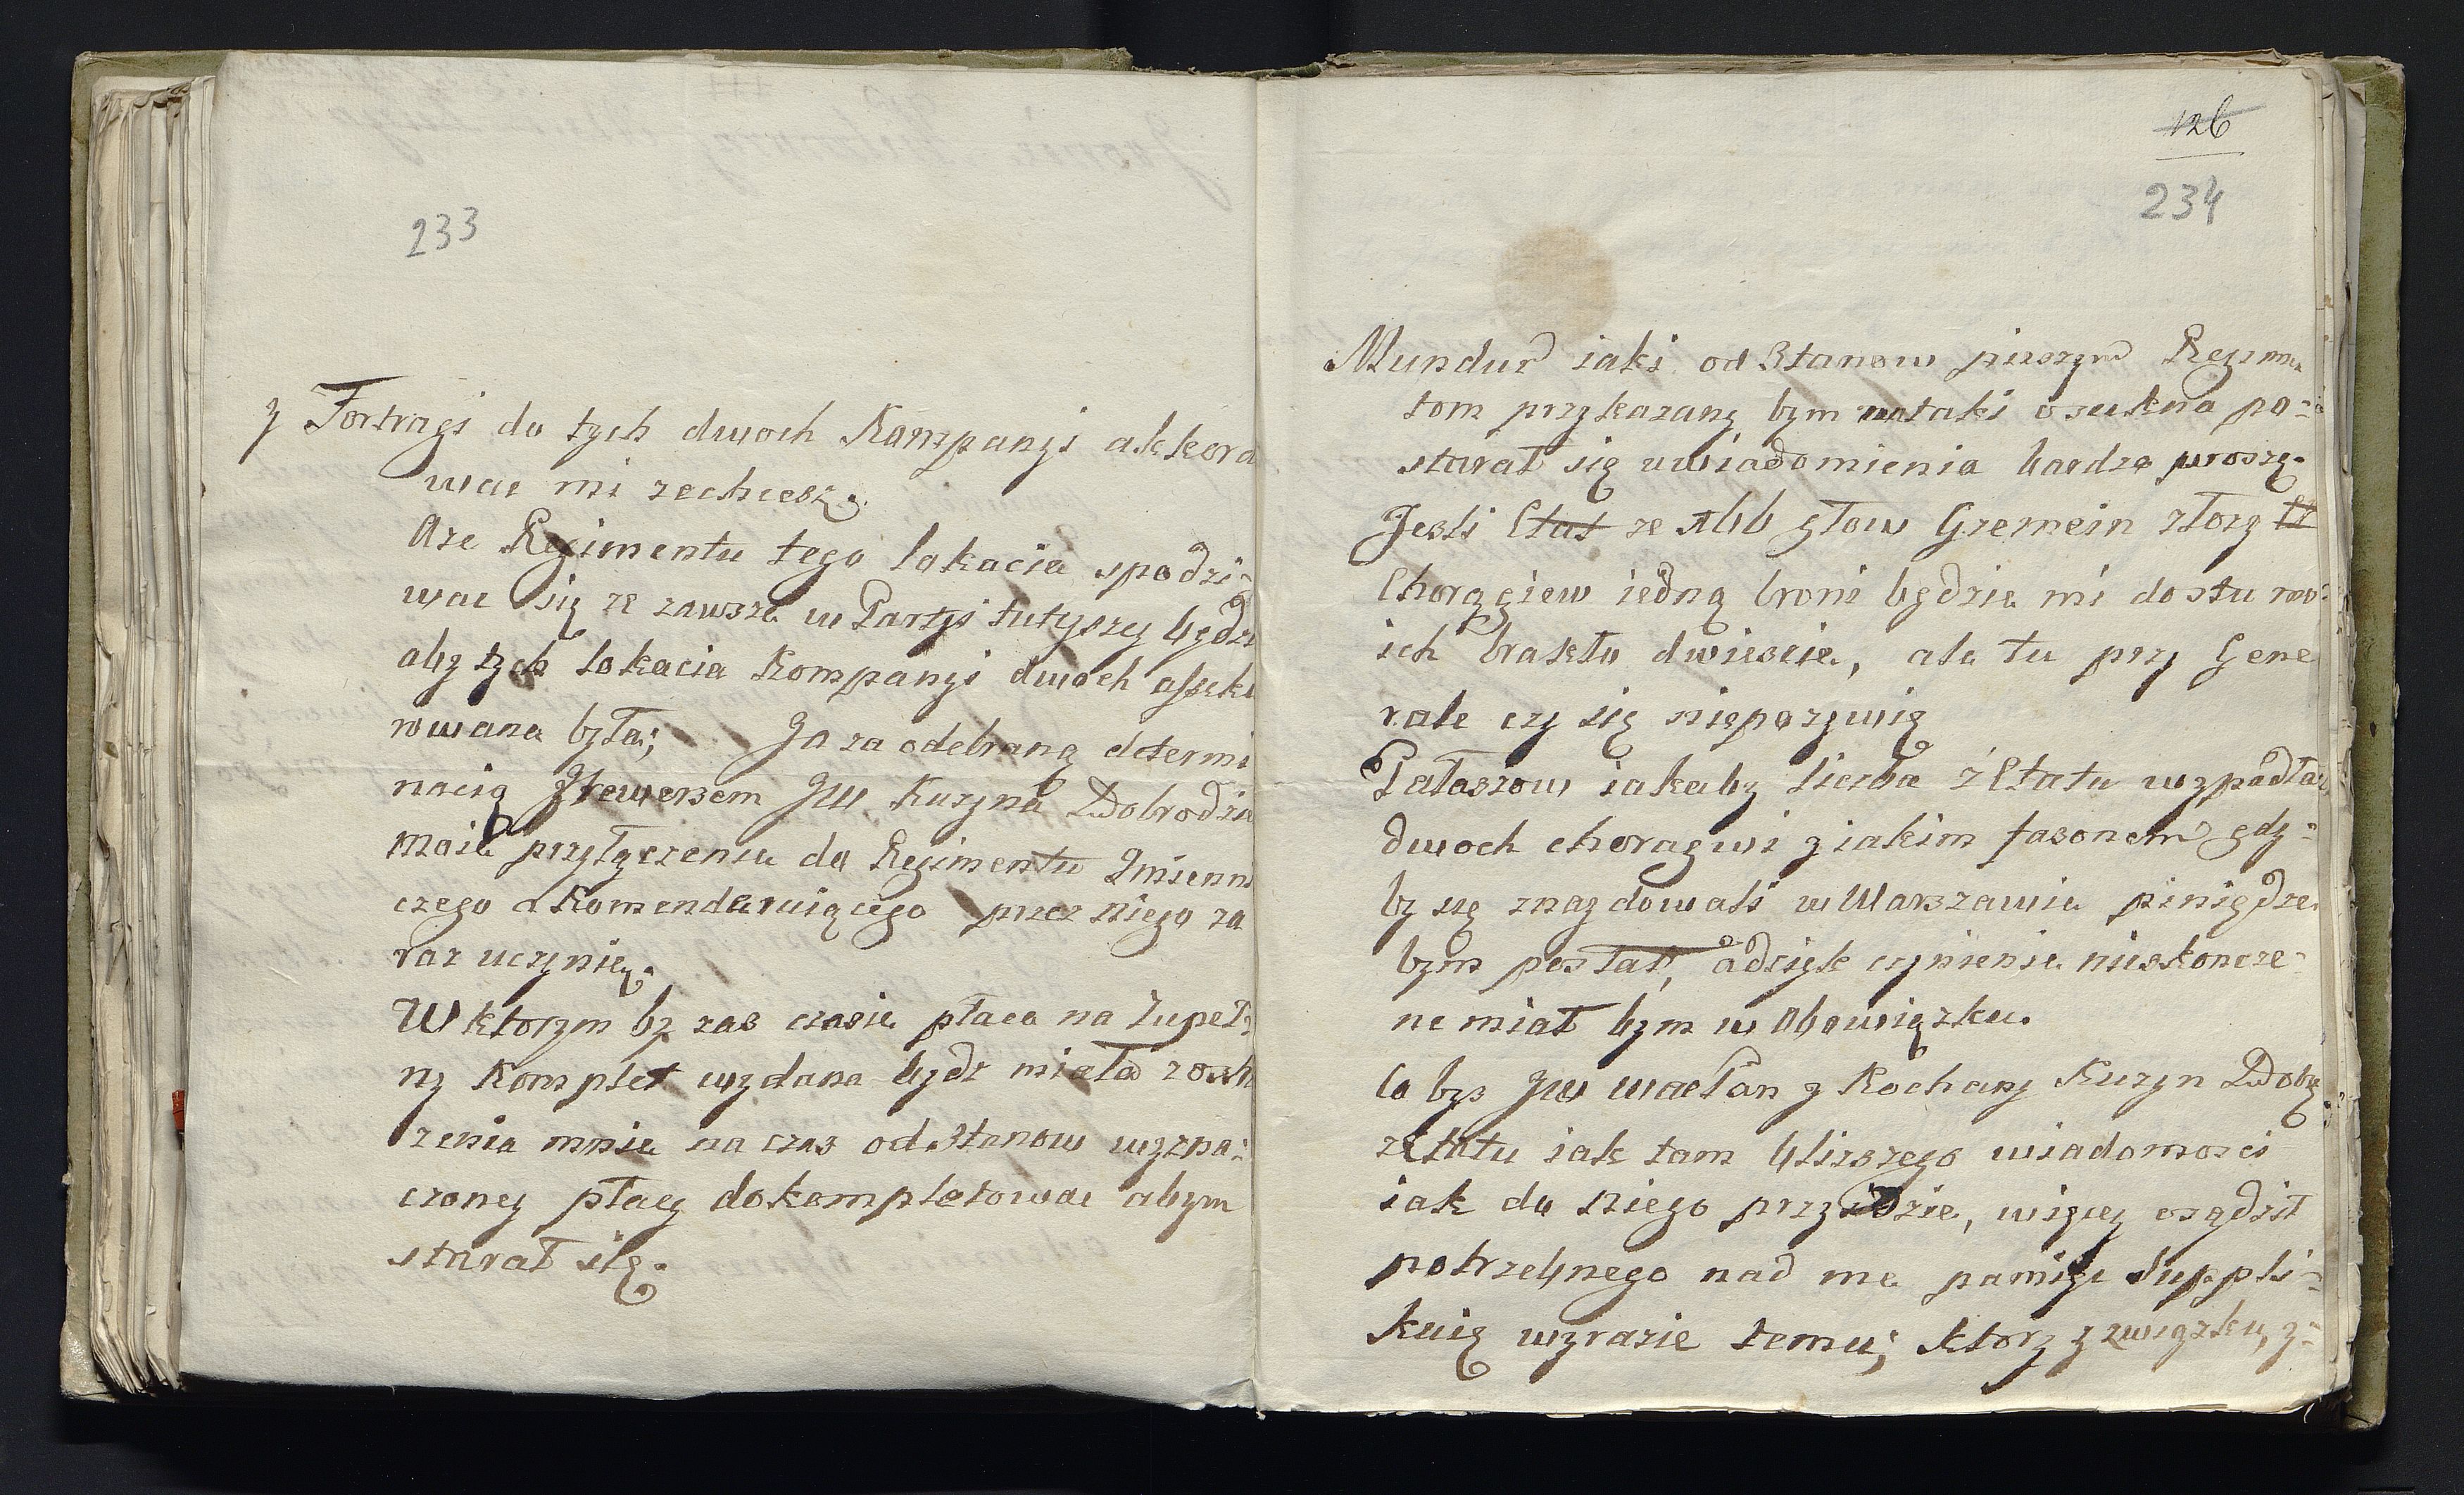 233
y Fortragi do tych dwoch Kompanyi akkord
wac mi zechcesz.
Aze Regimentu tego lokacia spodzi-
wac się ze zawsze w Partyi tutyszey będzi
aby tych lokacia Kompanyi dwoch asseku
rowana była; Ja za odebraną determi
nacią Jrewersem JW. Kuzyna Ddobrodzia
moie przyłączeniu do Regimentu Imienni
czego a Komenderuiącego przez niego za
raz uczynię.
W ktorym by zas czasie płaca na zupeł
ny Komplet wydana bydz miała
rzenia mnie na czas od Stanow wyzna-
czoney płacy dokompletowac abym
starał się.
126
234
Mundur iaki od Stanow pieszym Regimen
tom przykazany bym w taki o sukna po-
starał się uwiadomienia bardzo proszę.
Jesli Etat ze głow Gzemein złozy
Chorągiew iedną broni będzie mi do stu mo-
ich brakło dwiescie, ale tu przy Gene
rale czy się niepozywię
Pałaszow iakaby liczba z Etatu wypadła
dwoch choragwi y iakim fasonem gdy-
by się znaydowali w Warszawie piniędze
bym posłał, a dzięk czynienie nieskoncze-
ne miał bym w Obowiązku.
Co bys JW WacPan y Kochany Kuzyn Ddobr
z Etatu iak tam blizszego wiadomosci
iak do niego przyidzie, więcey osądził
potrzebnego nad me pamięc suppli-
kuię wyrazie temu; ktory z związku, y-